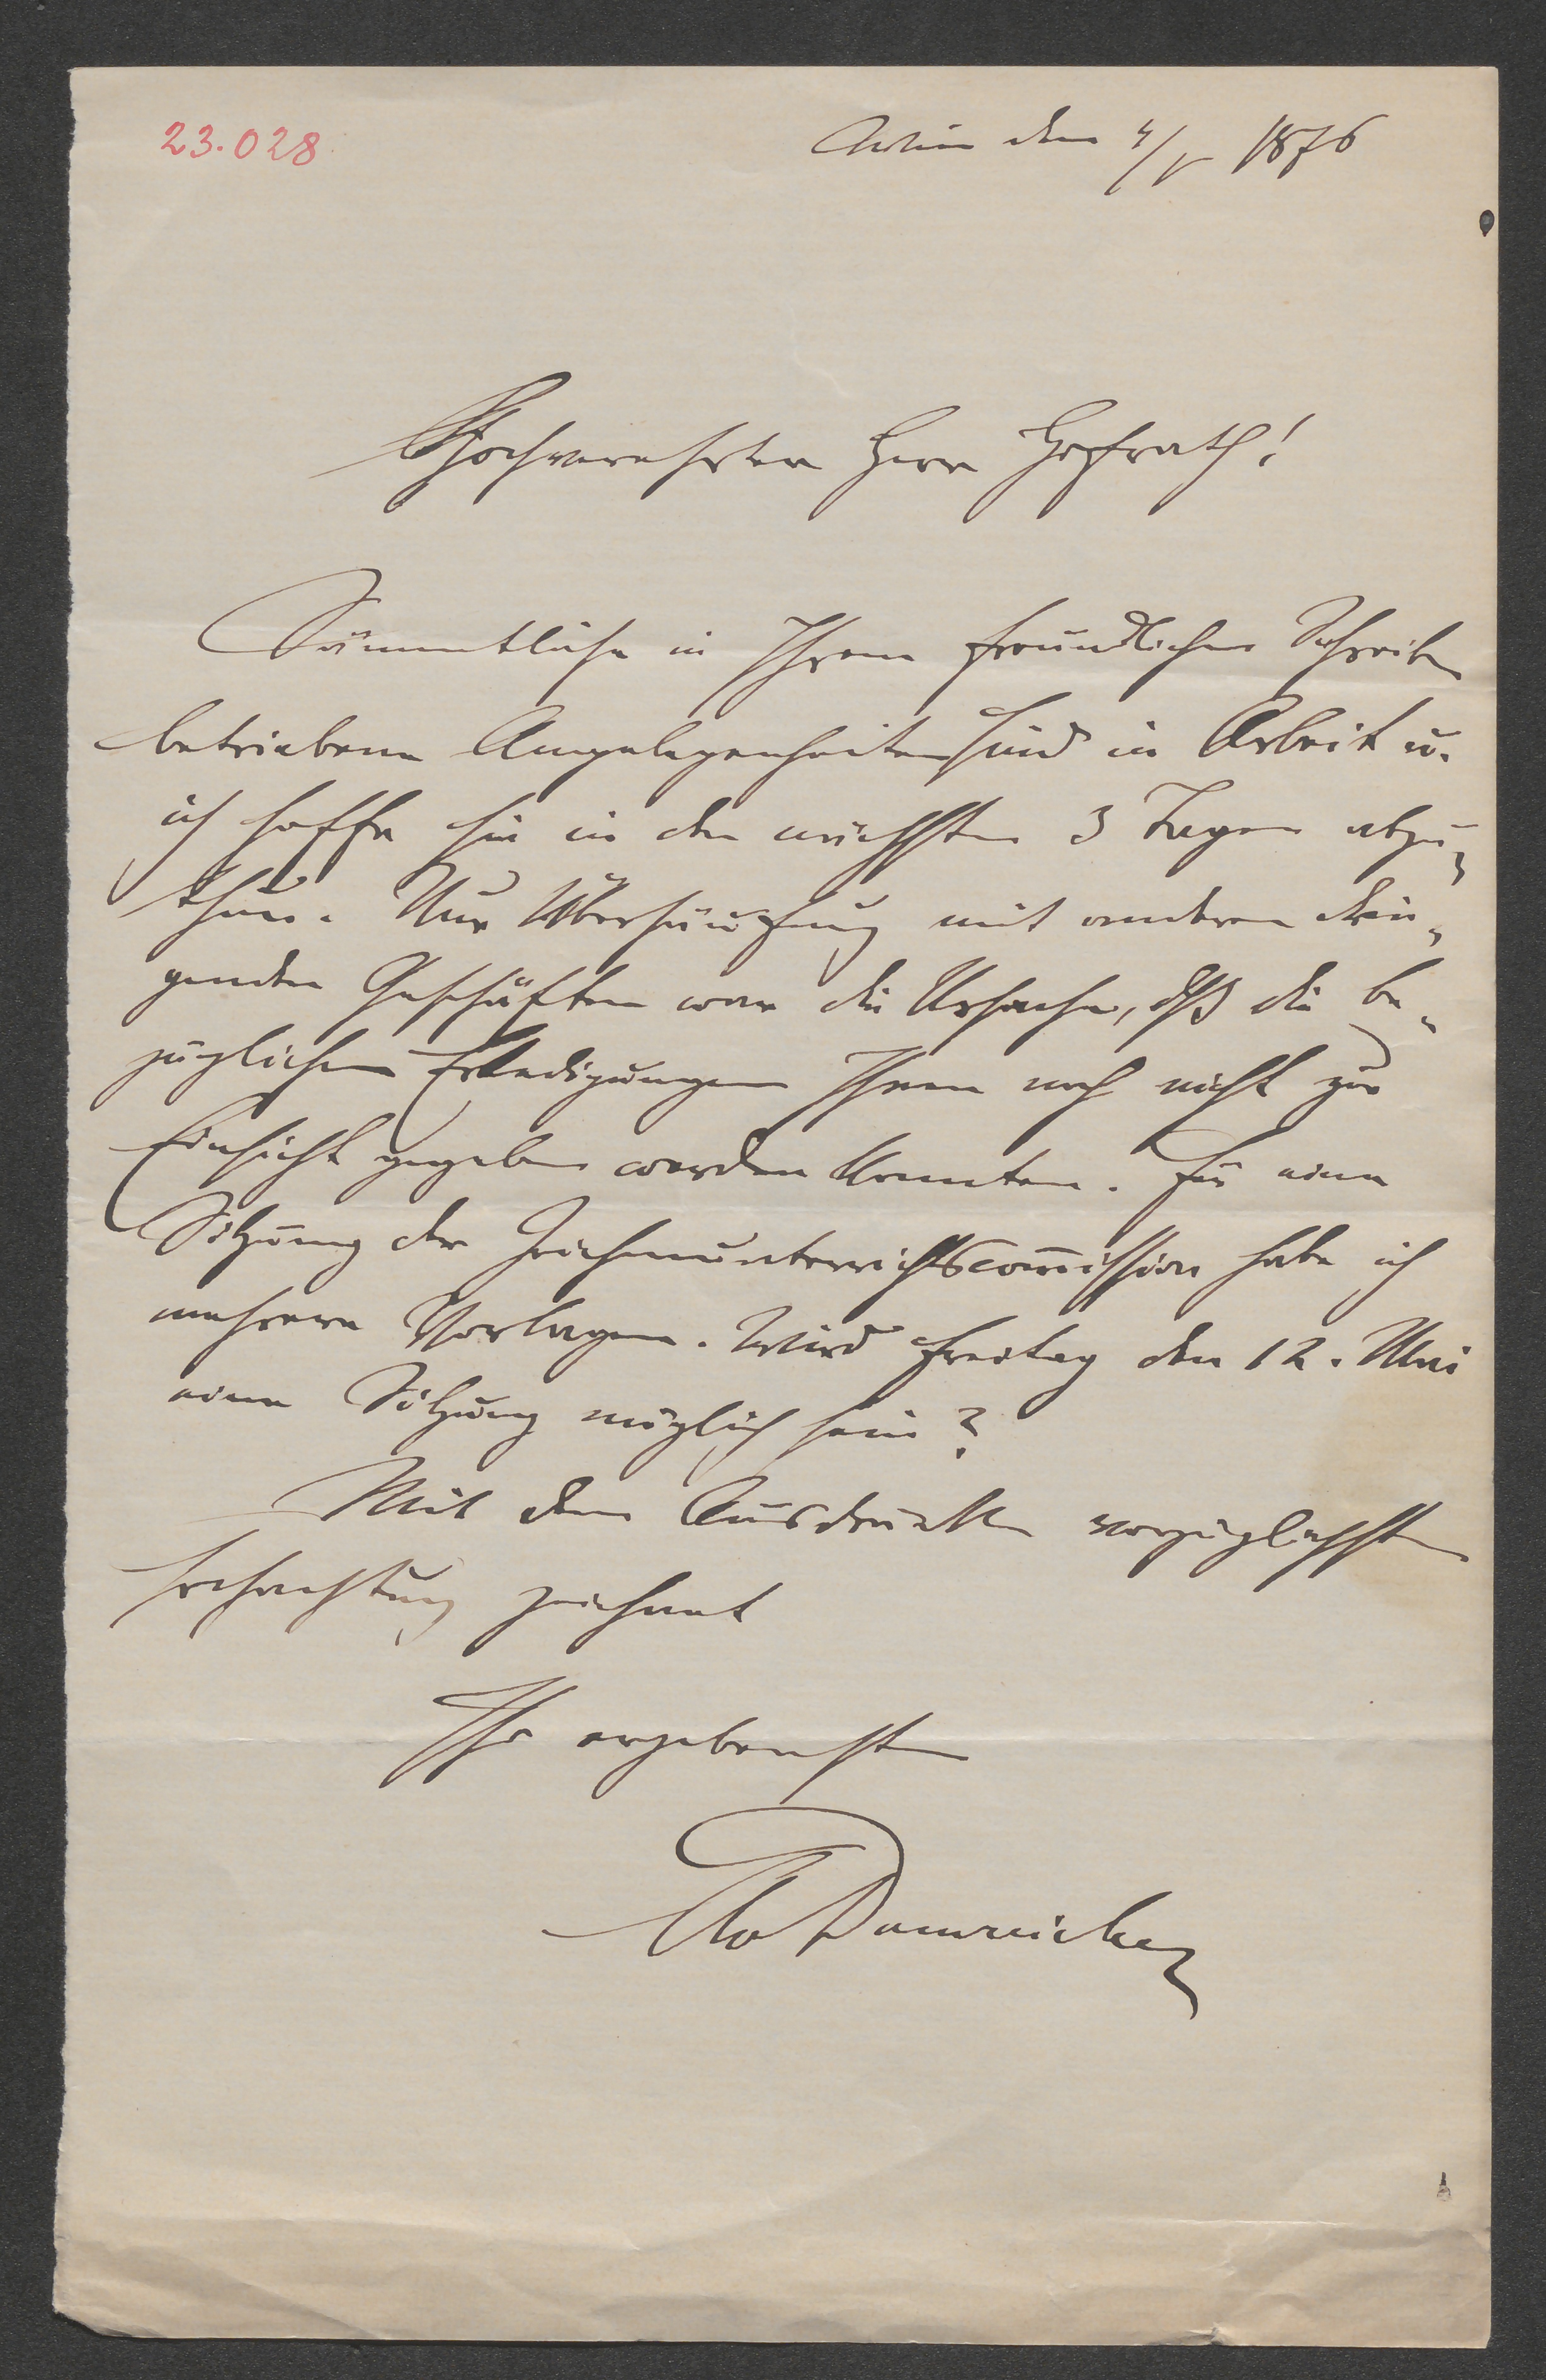 23.028
Wien den 4/V 1876
Hochverehrter Herr Hofrath!
Sämmtliche in Ihrem freundlichen Schreiben
betriebene Angelegenheiten sind in Arbeit u.
ich hoffe sie in den nächsten 3 Tagen abzu„
thun. Nur Überhäufung mit anderen drin„
genden Geschäften war die Ursache, dß die be„
züglichen Erledigungen Ihnen noch nicht zur
Einsicht gegeben werden konnten. Für eine
Sitzung der Zeichenunterrichtscom̅ission habe ich
mehrere Vorlagen. Wird Freitag den 12. Mai
eine Sitzung möglich sein?
Mit dem Ausdrucke vorzüglichster
Hochachtung zeichnet
Ihr ergebenster
Dumreicher